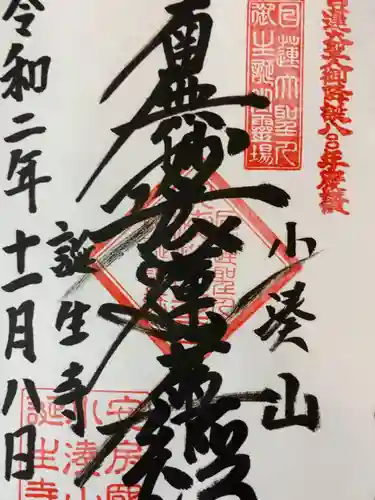 日蓮大聖人御降誕八〇〇年慶讃
日蓮大聖人
御生誕霊場
南無妙法蓮華経
小湊山
誕生寺
令和二年十一月八日
安房国
小湊山
誕生寺